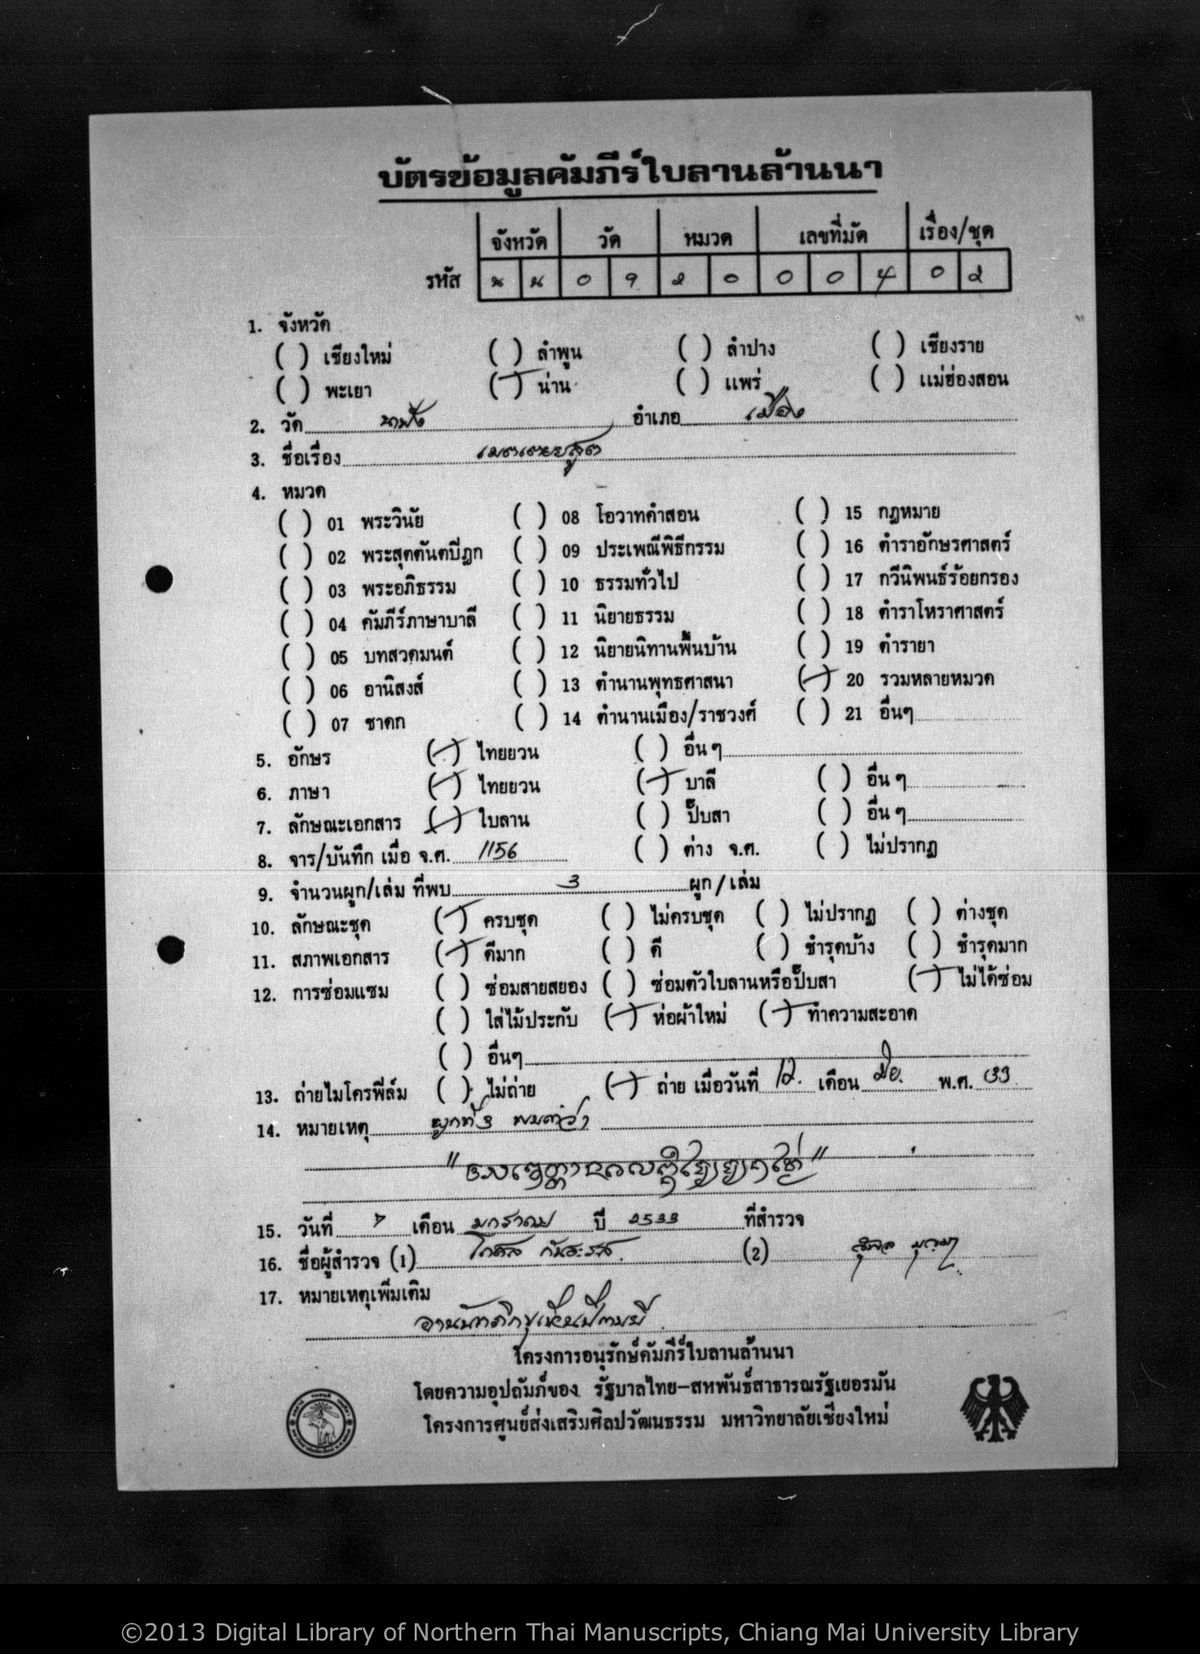 บัตรข้อมูลคัมภีร์ใบลานล้านนา
จังหวัด วัด หมวด เลขที่มัด เรื่อง/ชุด
รหัส น น 0 9 2 0 0 0 4 0 2
1. จังหวัด
( ) เชียงใหม่ ( ) ลำพูน ( ) ลำปาง ( ) เชียงราย
( ) พะเยา (/) น่าน ( ) แพร่ ( ) แม่ฮ่องสอน
2. วัด อำเภอ เมือง
3. ชื่อเรื่อง เมตเตยยสูตร
4. หมวด
( ) 01 พระวินัย ( ) 08 โอวาทคำสอน ( ) 15 กฎหมาย
( ) 02 พระสุตตันตปิฎก ( ) 09 ประเพณีพิธีกรรม ( ) 16 ตำราอักษรศาสตร์
( ) 03 พระอภิธรรม ( ) 10 ธรรมทั่วไป ( ) 17 กวีนิพนธ์ร้อยกรอง
( ) 04 คัมภีร์ภาษาบาลี ( ) 11 นิยายธรรม ( ) 18 ตำราโหราศาสตร์
( ) 05 บทสวดมนต์ ( ) 12 นิยายนิทานพื้นบ้าน ( ) 19 ตำรายา
( ) 06 อานิสงส์ ( ) 13 ตำนานพุทธศาสนา (/) 20 รวมหลายหมวด
( ) 07 ชาดก ( ) 14 ตำนานเมือง/ราชวงศ์ ( ) 21 อื่นๆ
5. อักษร (/) ไทยยวน ( ) อื่น ๆ
6. ภาษา (/) ไทยยวน (/) บาลี ( ) อื่น ๆ
7. ลักษณะเอกสาร (/) ใบลาน ( ) ปั๊บสา ( ) อื่น ๆ
8. จาร/บันทึก เมื่อ จ.ศ. 1156 ( ) ต่าง จ.ศ. ( ) ไม่ปรากฏ
9. จำนวนผูก/เล่ม ที่พบ 3 ผูก/เล่ม
10. ลักษณะชุด (/) ครบชุด ( ) ไม่ครบชุด ( ) ไม่ปรากฏ ( ) ต่างชุด
11. สภาพเอกสาร (/) ดีมาก ( ) ดี ( ) ชำรุดบ้าง ( ) ชำรุดมาก
12. การซ่อมแซม ( ) ซ่อมสายสยอง ( ) ซ่อมตัวใบลานหรือปั๊บสา (/) ไม่ได้ซ่อม
( ) ใส่ไม้ประกับ (/) ห่อผ้าใหม่ (/) ทำความสะอาด
( ) อื่นๆ
13. ถ่ายไมโครฟิล์ม ( ) ไม่ถ่าย (/) ถ่าย เมื่อวันที่ 12. เดือน มิย. พ.ศ. 33
14. หมายเหตุ ผูกที่ 3
15. วันที่ 7 เดือน มกราคม ปี 2533 ที่สำรวจ
16. ชื่อผู้สำรวจ (1) (2)
17. หมายเหตุเพิ่มเติม
โครงการอนุรักษ์คัมภีร์ใบลานล้านนา
โดยความอุปถัมภ์ของ รัฐบาลไทย-สหพันธ์สาธารณรัฐเยอรมัน
โครงการศูนย์ส่งเสริมศิลปวัฒนธรรม มหาวิทยาลัยเชียงใหม่
©2013 Digital Library of Northern Thai Manuscripts, Chiang Mai University Library